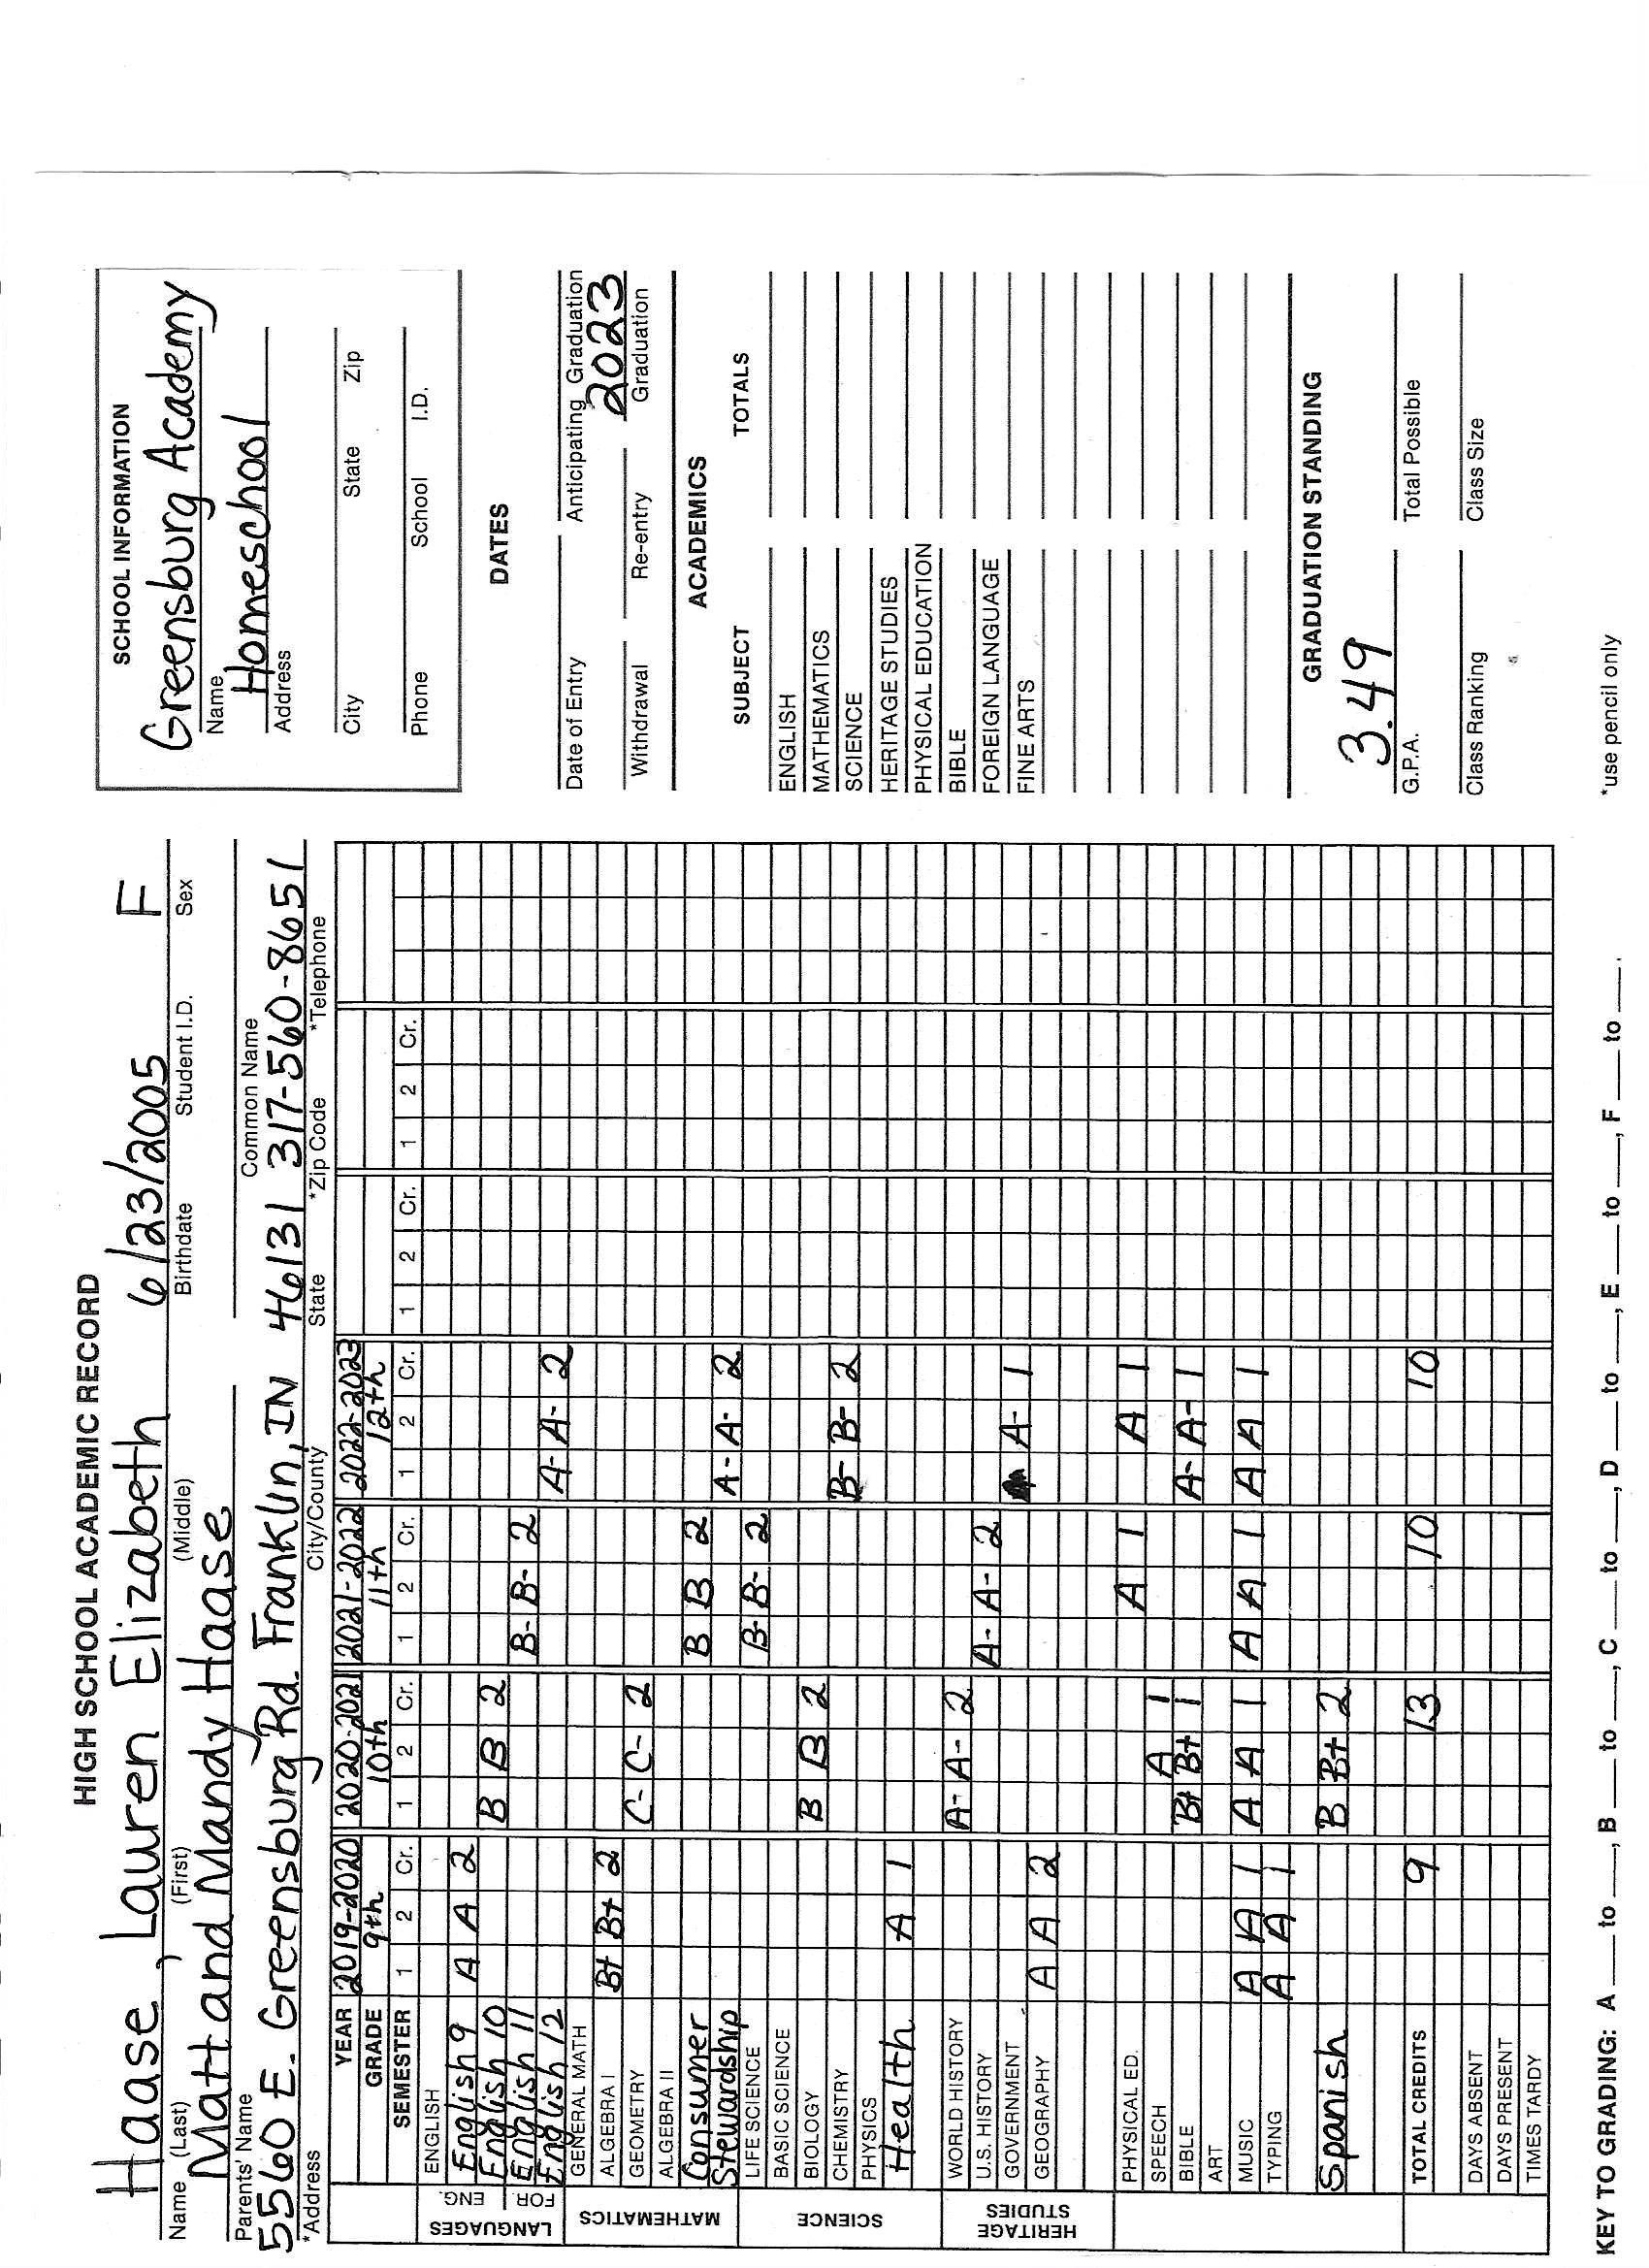 HIGH SCHOOL ACADEMIC RECORD
Haase, Lauren Elizabeth 6/23/2005 F
Name (Last) (First) (Middle) Birthdate Student I.D. Sex
Matt and Mandy Haase
Parents' Name Common Name
5560 E. Greensburg Rd. Franklin, IN 46131 317-560-8651
*Address City/County State *Zip Code *Telephone
YEAR 2019-2020 2020-2021 2021-2022 2022-2023
GRADE 9th 10th 11th 12th
SEMESTER 1 2 Cr. 1 2 Cr. 1 2 Cr. 1 2 Cr. 1 2 Cr. 1 2 Cr.
LANGUAGES FOR. ENG.
ENGLISH
English 9 A A 2
English 10 B B 2
English 11 B- B- 2
English 12 A- A- 2
MATHEMATICS
GENERAL MATH
ALGEBRA I B+ B+ 2
GEOMETRY C- C- 2
ALGEBRA II
Consumer B B 2
Stewardship A- A- 2
SCIENCE
LIFE SCIENCE B- B- 2
BASIC SCIENCE
BIOLOGY B B 2
CHEMISTRY B- B- 2
PHYSICS
Health A 1
HERITAGE STUDIES
WORLD HISTORY A- A- 2
U.S. HISTORY A- A- 2
GOVERNMENT A- 1
GEOGRAPHY A A 2
PHYSICAL ED. A 1 A 1
SPEECH A 1
BIBLE B+ B+ 1 A- A- 1
ART
MUSIC A A 1 A A 1 A A 1 A A 1
TYPING A A 1
Spanish B B+ 2
TOTAL CREDITS 9 13 10 10
DAYS ABSENT
DAYS PRESENT
TIMES TARDY
KEY TO GRADING: A ___ to ___, B ___ to ___, C ___ to ___, D ___ to ___, E ___ to ___, F ___ to ___.
SCHOOL INFORMATION
Greensburg Academy
Name
Homeschool
Address
City State Zip
Phone School I.D.
DATES
Date of Entry Anticipating Graduation
2023
Withdrawal Re-entry Graduation
ACADEMICS
SUBJECT TOTALS
ENGLISH
MATHEMATICS
SCIENCE
HERITAGE STUDIES
PHYSICAL EDUCATION
BIBLE
FOREIGN LANGUAGE
FINE ARTS
GRADUATION STANDING
3.49
G.P.A. Total Possible
Class Ranking Class Size
*use pencil only